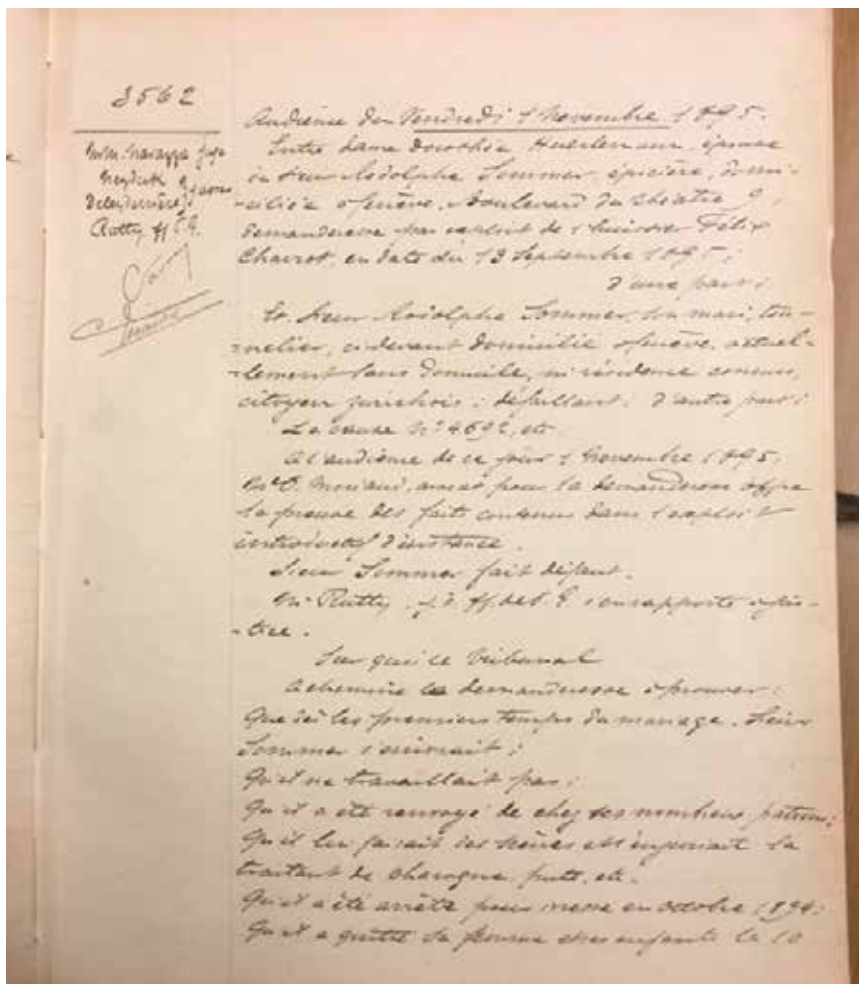 3562
MM. Navazza juge
Rutty ff P.G.
Audience du Vendredi 1 Novembre 1895.
Entre dame Dorothée épouse
du sieur Rodolphe Sommer, épicière, domi-
-ciliée à Genève, Boulevard du Théâtre 9,
demanderesse par exploit de l'huissier Félix
Chavrot, en date du 13 Septembre 1895;
d'une part;
Et sieur Rodolphe Sommer, son mari, ton-
-nelier, ci devant domicilié à Genève, actuel-
-lement sans domicile, ni résidence connus,
citoyen zurichois; défaillant; d'autre part;
La cause N° 4692, etc
A l'audience de ce jour 1 Novembre 1895,
Me Moriaud, avocat pour la demanderesse offre
la preuve des faits contenus dans l'exploit
introductif d'instance.
Sieur Sommer fait défaut.
Mr Rutty, s'en rapporte à jus-
-tice.
Sur quoi le Tribunal
Achemine la demanderesse à prouver:
Que dès les premiers temps du mariage, Sieur
Sommer s'enivrait;
Qu'il ne travaillait pas;
Qu'il a été renvoyé de chez ses nombreux patrons;
Qu'il lui faisait des scènes et l'injuriait la
traitant de charogne, putt, etc.
Qu'il a été arrêté pour ivresse en octobre 1894;
Qu'il a quitté sa femme et ses enfants le 10